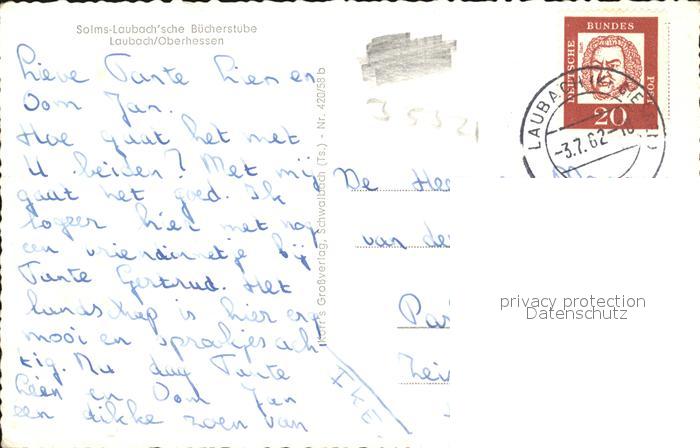 Solms-Laubach'sche Bücherstube
Laubach/Oberhessen
Lieve Tante Lien en
Oom Jan.
Hoe gaat het met
U beiden? Met mij
gaat het goed. Ik
logeer hier met nog
een vriendinnetje bij
Tante Gertrud. Het
landschap is hier erg
mooi en sprookjesach
tig. Nu dag Tante
Lien en Oom Jan
een dikke zoen van
IKE
Kurt's Großverlag, Schwalbach (Ts.) - Nr. 420/58 b
DEUTSCHE BUNDES POST
20
LAUBACH
-3.7.62-18
De Hee
van de
Pa
Zei
privacy protection
Datenschutz